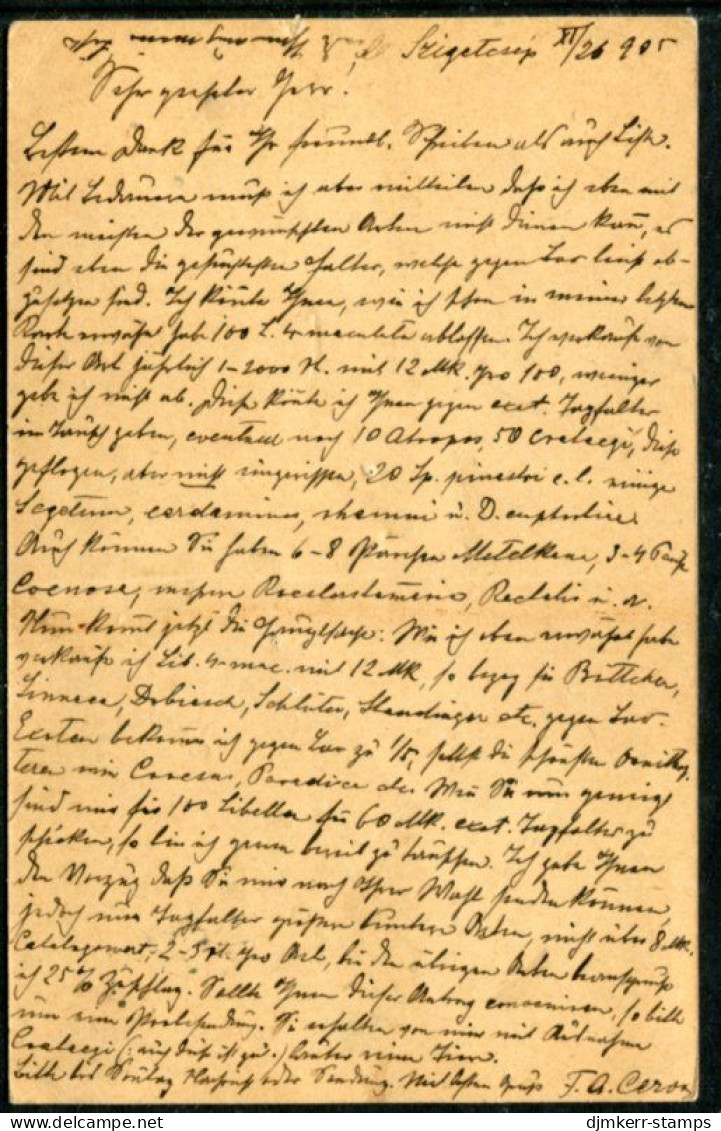 Szigetcsép XI/26 905
Sehr geehrter Herr!
Besten Dank für Ihr freundl. Schreiben als auch Liste.
Mit Bedauern muß ich aber mitteilen daß ich eben mit
den meisten der gewünschten Arten nicht dienen kann, es
sind eben die gesuchtesten Falter, welche gegen Bar leicht ab-
zusetzen sind. Ich könnte Ihnen, wie ich schon in meiner letzten
Karte erwähnt habe 100 L. 4-maculata ablassen. Ich verkaufe von
dieser Art jährlich 1-2000 St. mit 12 Mk. pro 100, weniger
gebe ich nicht ab. Diese könnte ich Ihnen gegen exot. Tagfalter
im Tausch geben, eventuell noch 10 Atropos, 50 Crataegi, diese
geflogen, aber nicht eingerissen, 20 Sp. pinastri e. l. einige
Segetum, cardamines, rhamni u. D. euphorbiae.
Auch können Sie haben 6-8 Pärchen Metelkana, 3-4 Paar
Coenosa, mehrere Rectalis u. a.
Nun kommt jetzt die Hauptsache. Wie ich eben erwähnt habe
verkaufe ich Lib. 4-mac. mit 12 Mk, so bezog sie Böttcher,
Linnaea, Dobiasch, Schlüter, Staudinger etc. gegen Bar.
Exoten bekomme ich gegen Bar zu 1/5, selbst die schönsten Ornithop-
teren wie Croesus, Paradisea etc. Wenn Sie nun geneigt
sind mir für 100 Libellen für 60 Mk. exot. Tagfalter zu
schicken, so bin ich gerne bereit zu tauschen. Ich gebe Ihnen
den Vorzug daß Sie mir nach Ihrer Wahl senden können,
jedoch nur Tagfalter größere buntere Arten, nicht über 8 Mk.
Catalogwert, 2-5 St. pro Art, bei den übrigen Arten beanspruche
ich 25 % Zuschlag. Sollte Ihnen dieser Antrag conveniren, so bitte
um eine Probesendung. Sie erhalten von mir mit Ausnahme
Crataegi (: auch diese ist gut.) lauter reine Tiere.
Bitte bis Sonntag Nachricht oder Sendung. Mit besten Gruß F. A. Cerva
djmkerr-stamps